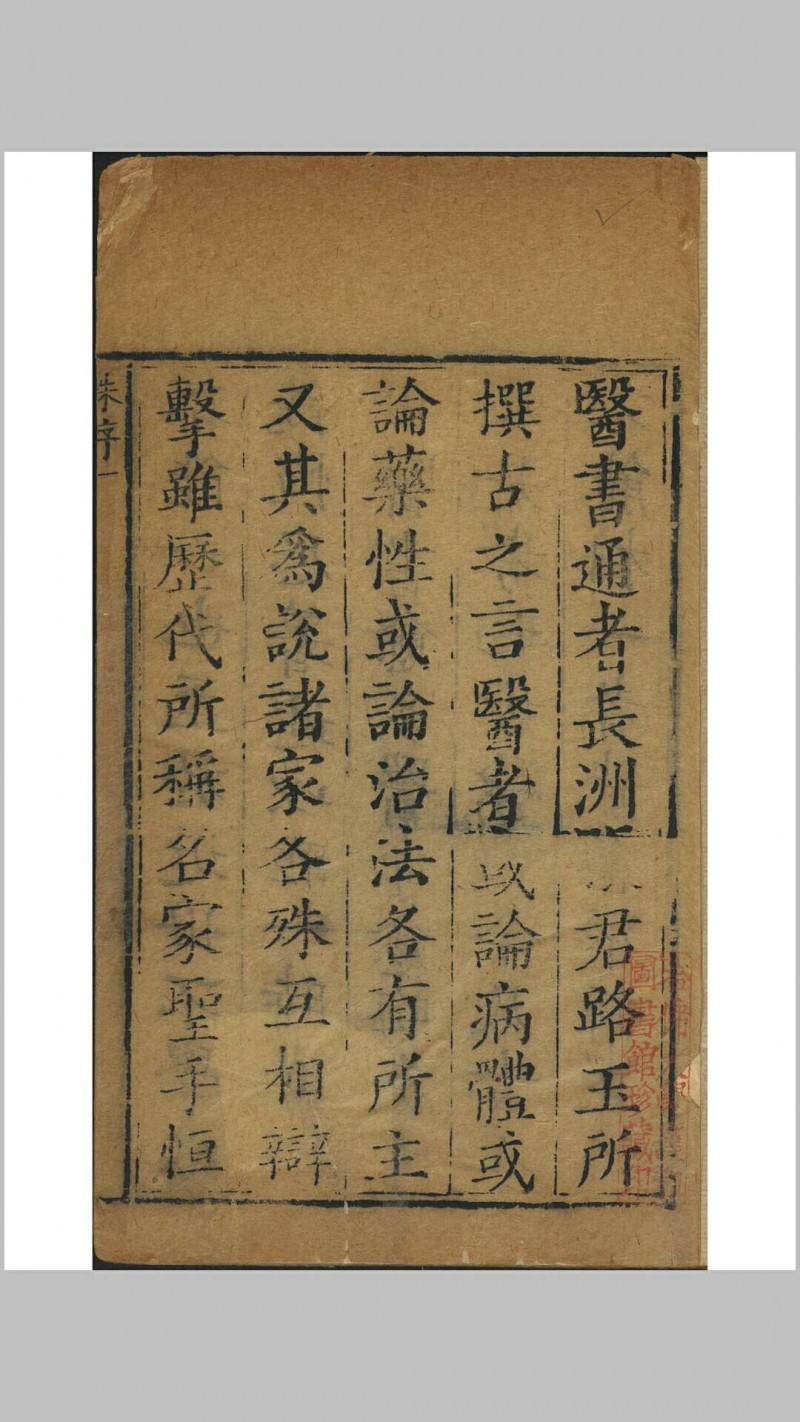 醫書通者長洲君路玉所
撰古之言醫者或論病體或
論藥性或論治法各有所主
又其為說諸家各殊互相辯
擊雖歷代所稱名家聖手恒
朱序一
圖書館珍藏印